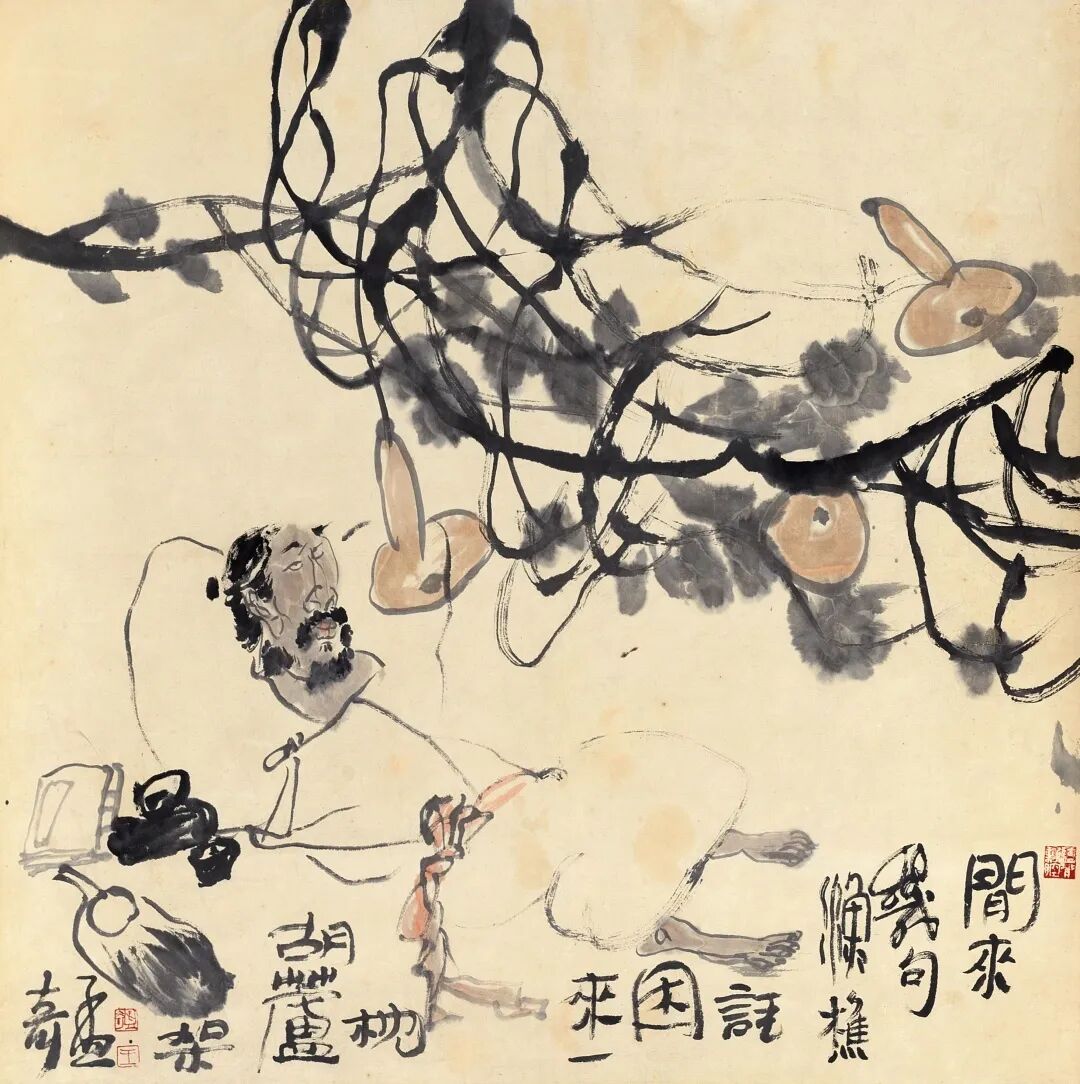 閒來
幾句
漁樵
話
困
來一
枕
胡蘆
架
孟奇